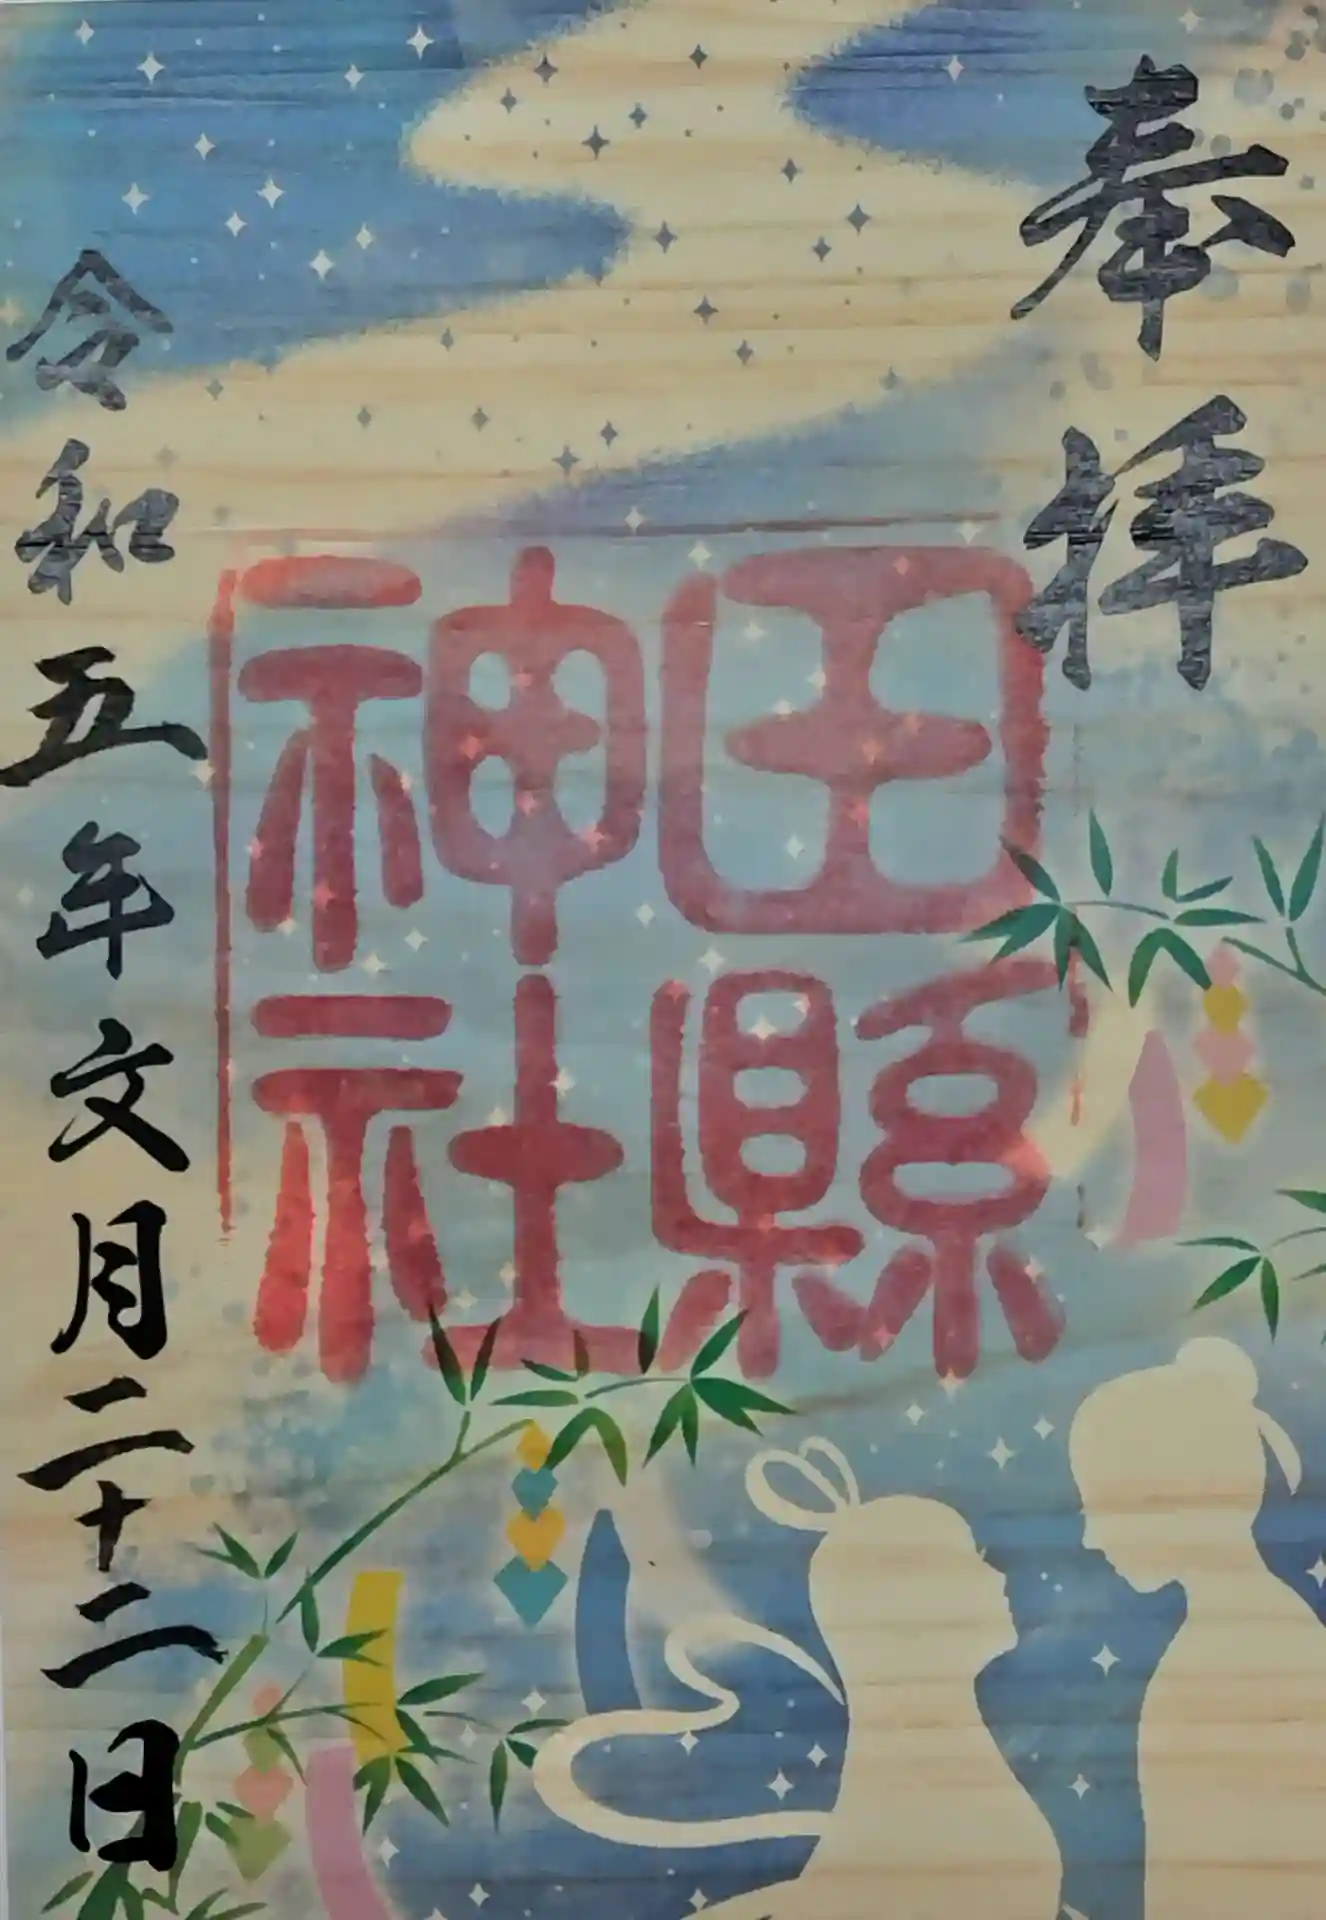 奉拝
田縣
神社
令和五年文月二十二日